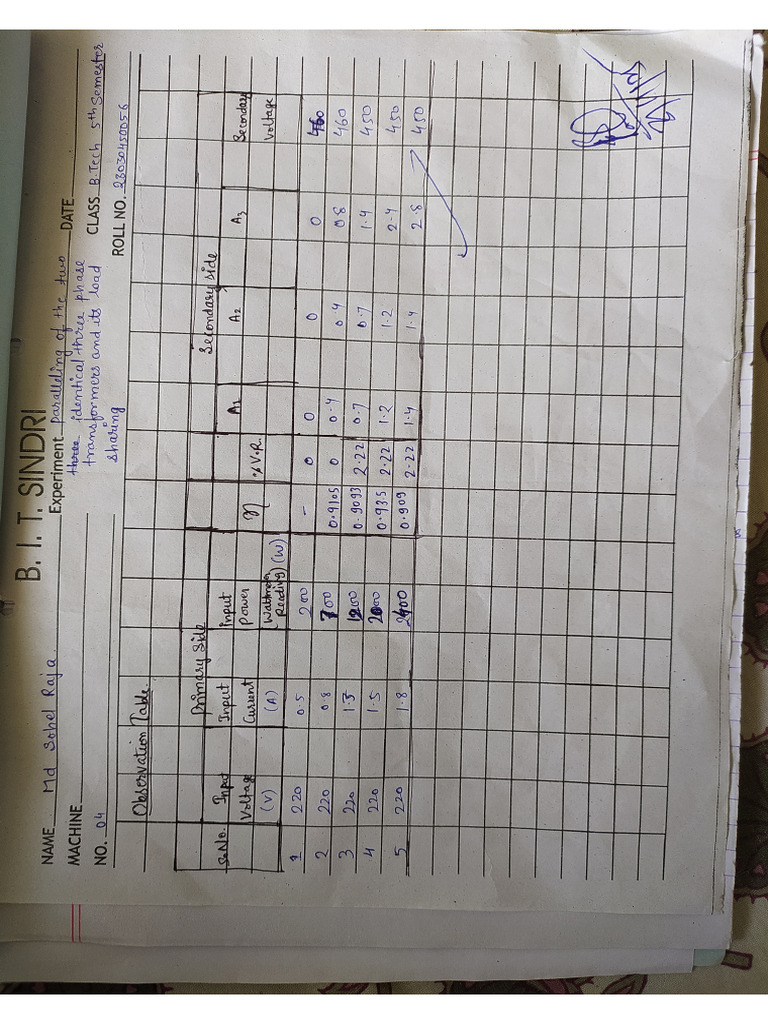 B. I. T. SINDRI
NAME Md Sohel Raja Experiment Paralleling of the two DATE
MACHINE three identical three phase CLASS B.Tech 5th Semester
NO. 04 transformers and its load ROLL NO. 23030450056
sharing
Observation Table.
Primary Side Secondary side
Sr.No. Input Voltage (V) Input Current (A) Input Power (Wattmeter Reading) (W) η %V.R. A1 A2 A3 Secondary Voltage
1 220 0.5 200 - 0 0 0 0 460
2 220 0.8 700 0.9105 0 0.4 0.4 0.8 460
3 220 1.3 1200 0.9093 2.22 0.7 0.7 1.4 450
4 220 1.5 2000 0.935 2.22 1.2 1.2 2.4 450
5 220 1.8 2400 0.909 2.22 1.4 1.4 2.8 450